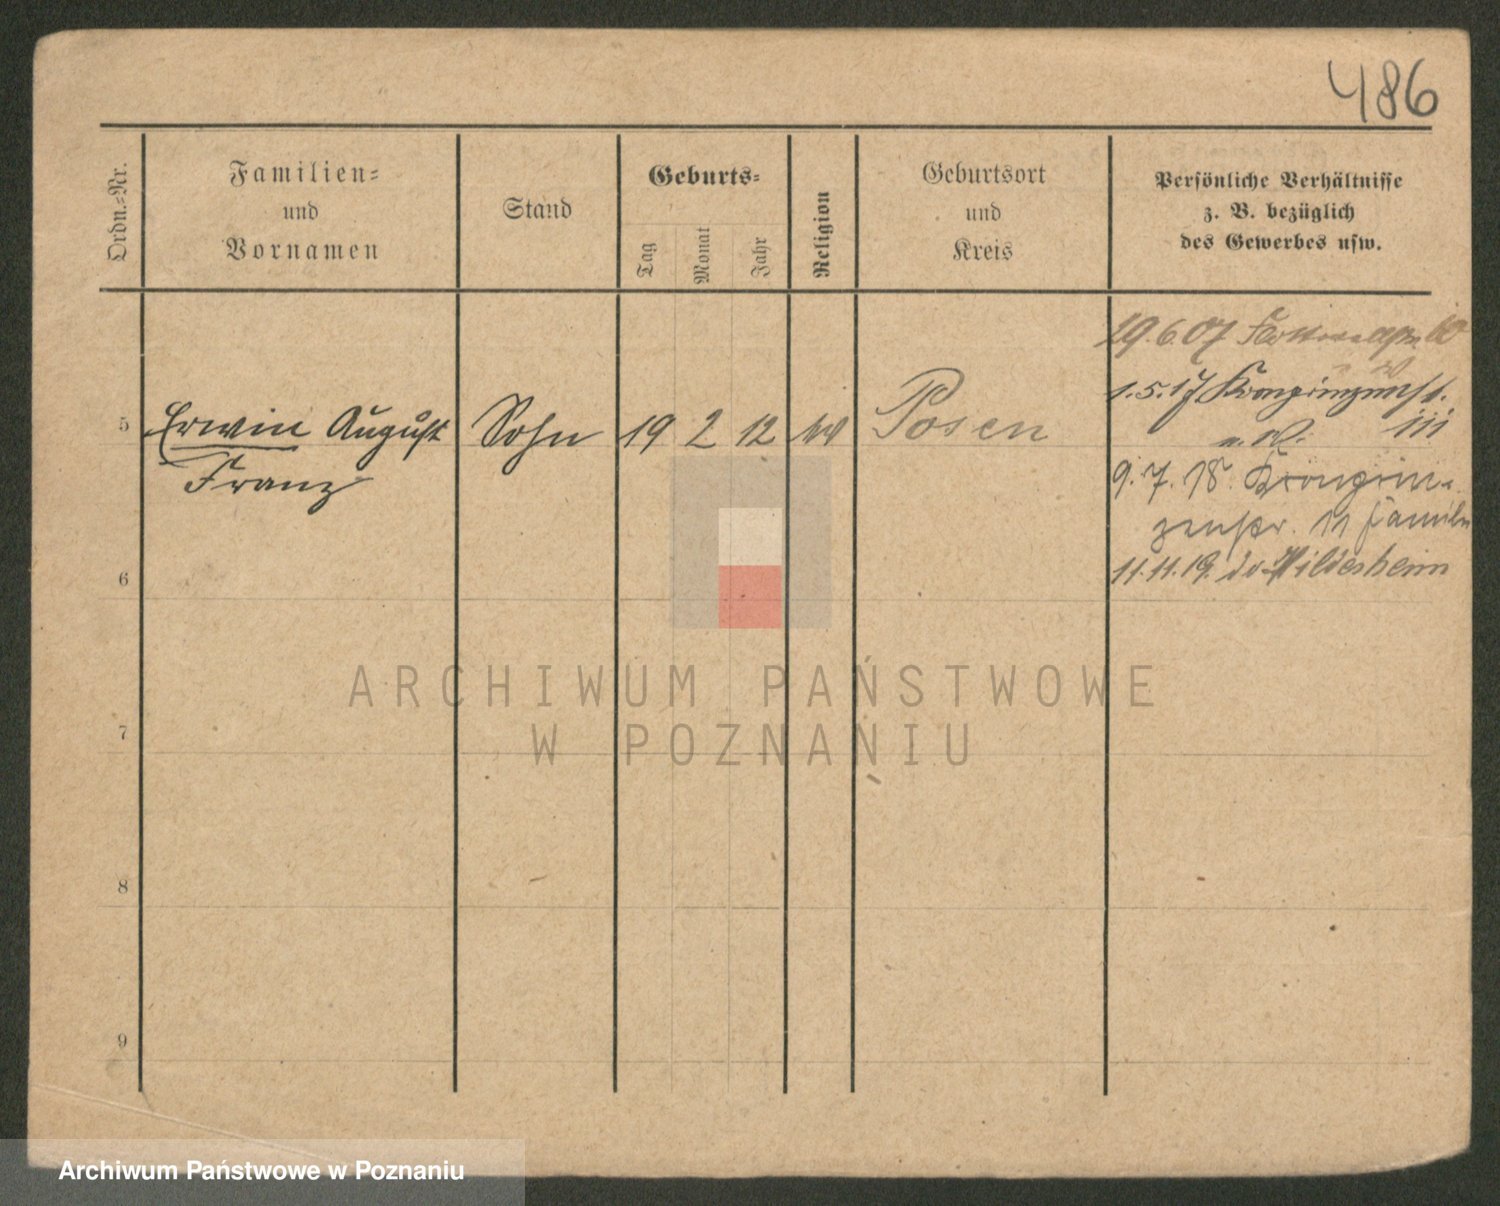 486
Ordn.-Nr.
Familien-
und
Vornamen
Stand
Geburts-
Tag
Monat
Jahr
Religion
Geburtsort
und
Kreis
Persönliche Verhältnisse
z. B. bezüglich
des Gewerbes usw.
29.6.07
1.5.17
5 Erwin August Sohn 19 2 12 Posen
Franz
9.7.18.
11
11.11.19. Hildesheim
6
7
8
9
ARCHIWUM PAŃSTWOWE
W POZNANIU
Archiwum Państwowe w Poznaniu